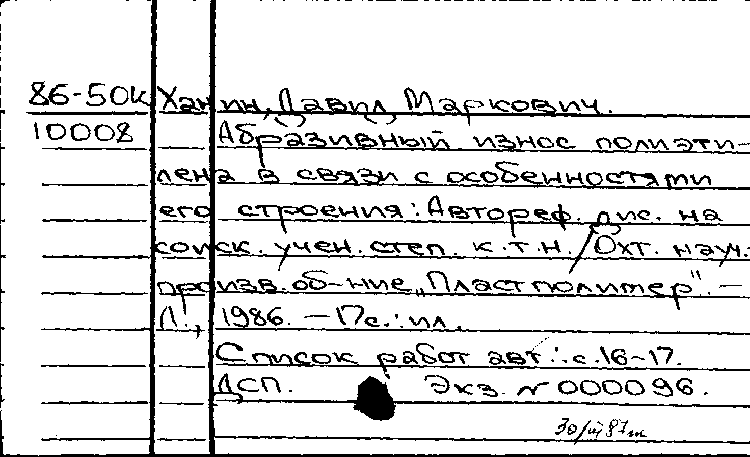 86-50к Ханин, Давид Маркович.
10008 Абразивный износ полиэти-
лена в связи с особенностями
его строения: Автореф. дис. на
соиск. учен. степ. к.т.н. / Охт. науч.-
произв. об-ние „Пластполимер". -
Л., 1986. - 17с.: ил.
Список работ авт.: с.16-17.
ДСП. Экз. № 000096.